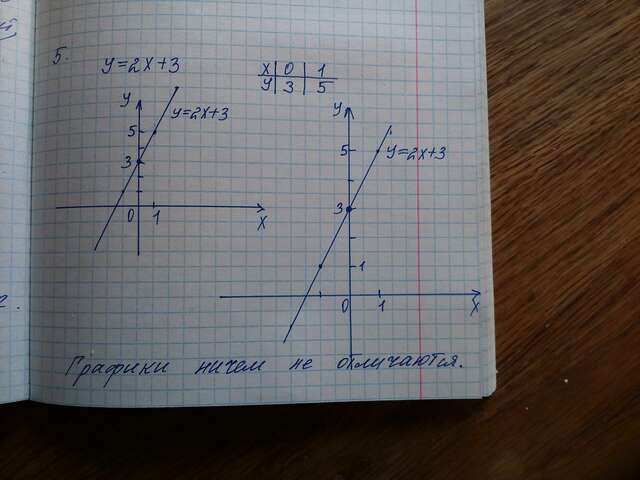 5.
y=2x+3
x 0 1
y 3 5
y
y=2x+3
5
3
0 1 x
y
5
y=2x+3
3
1
0 1 x
Графики ничем не отличаются.